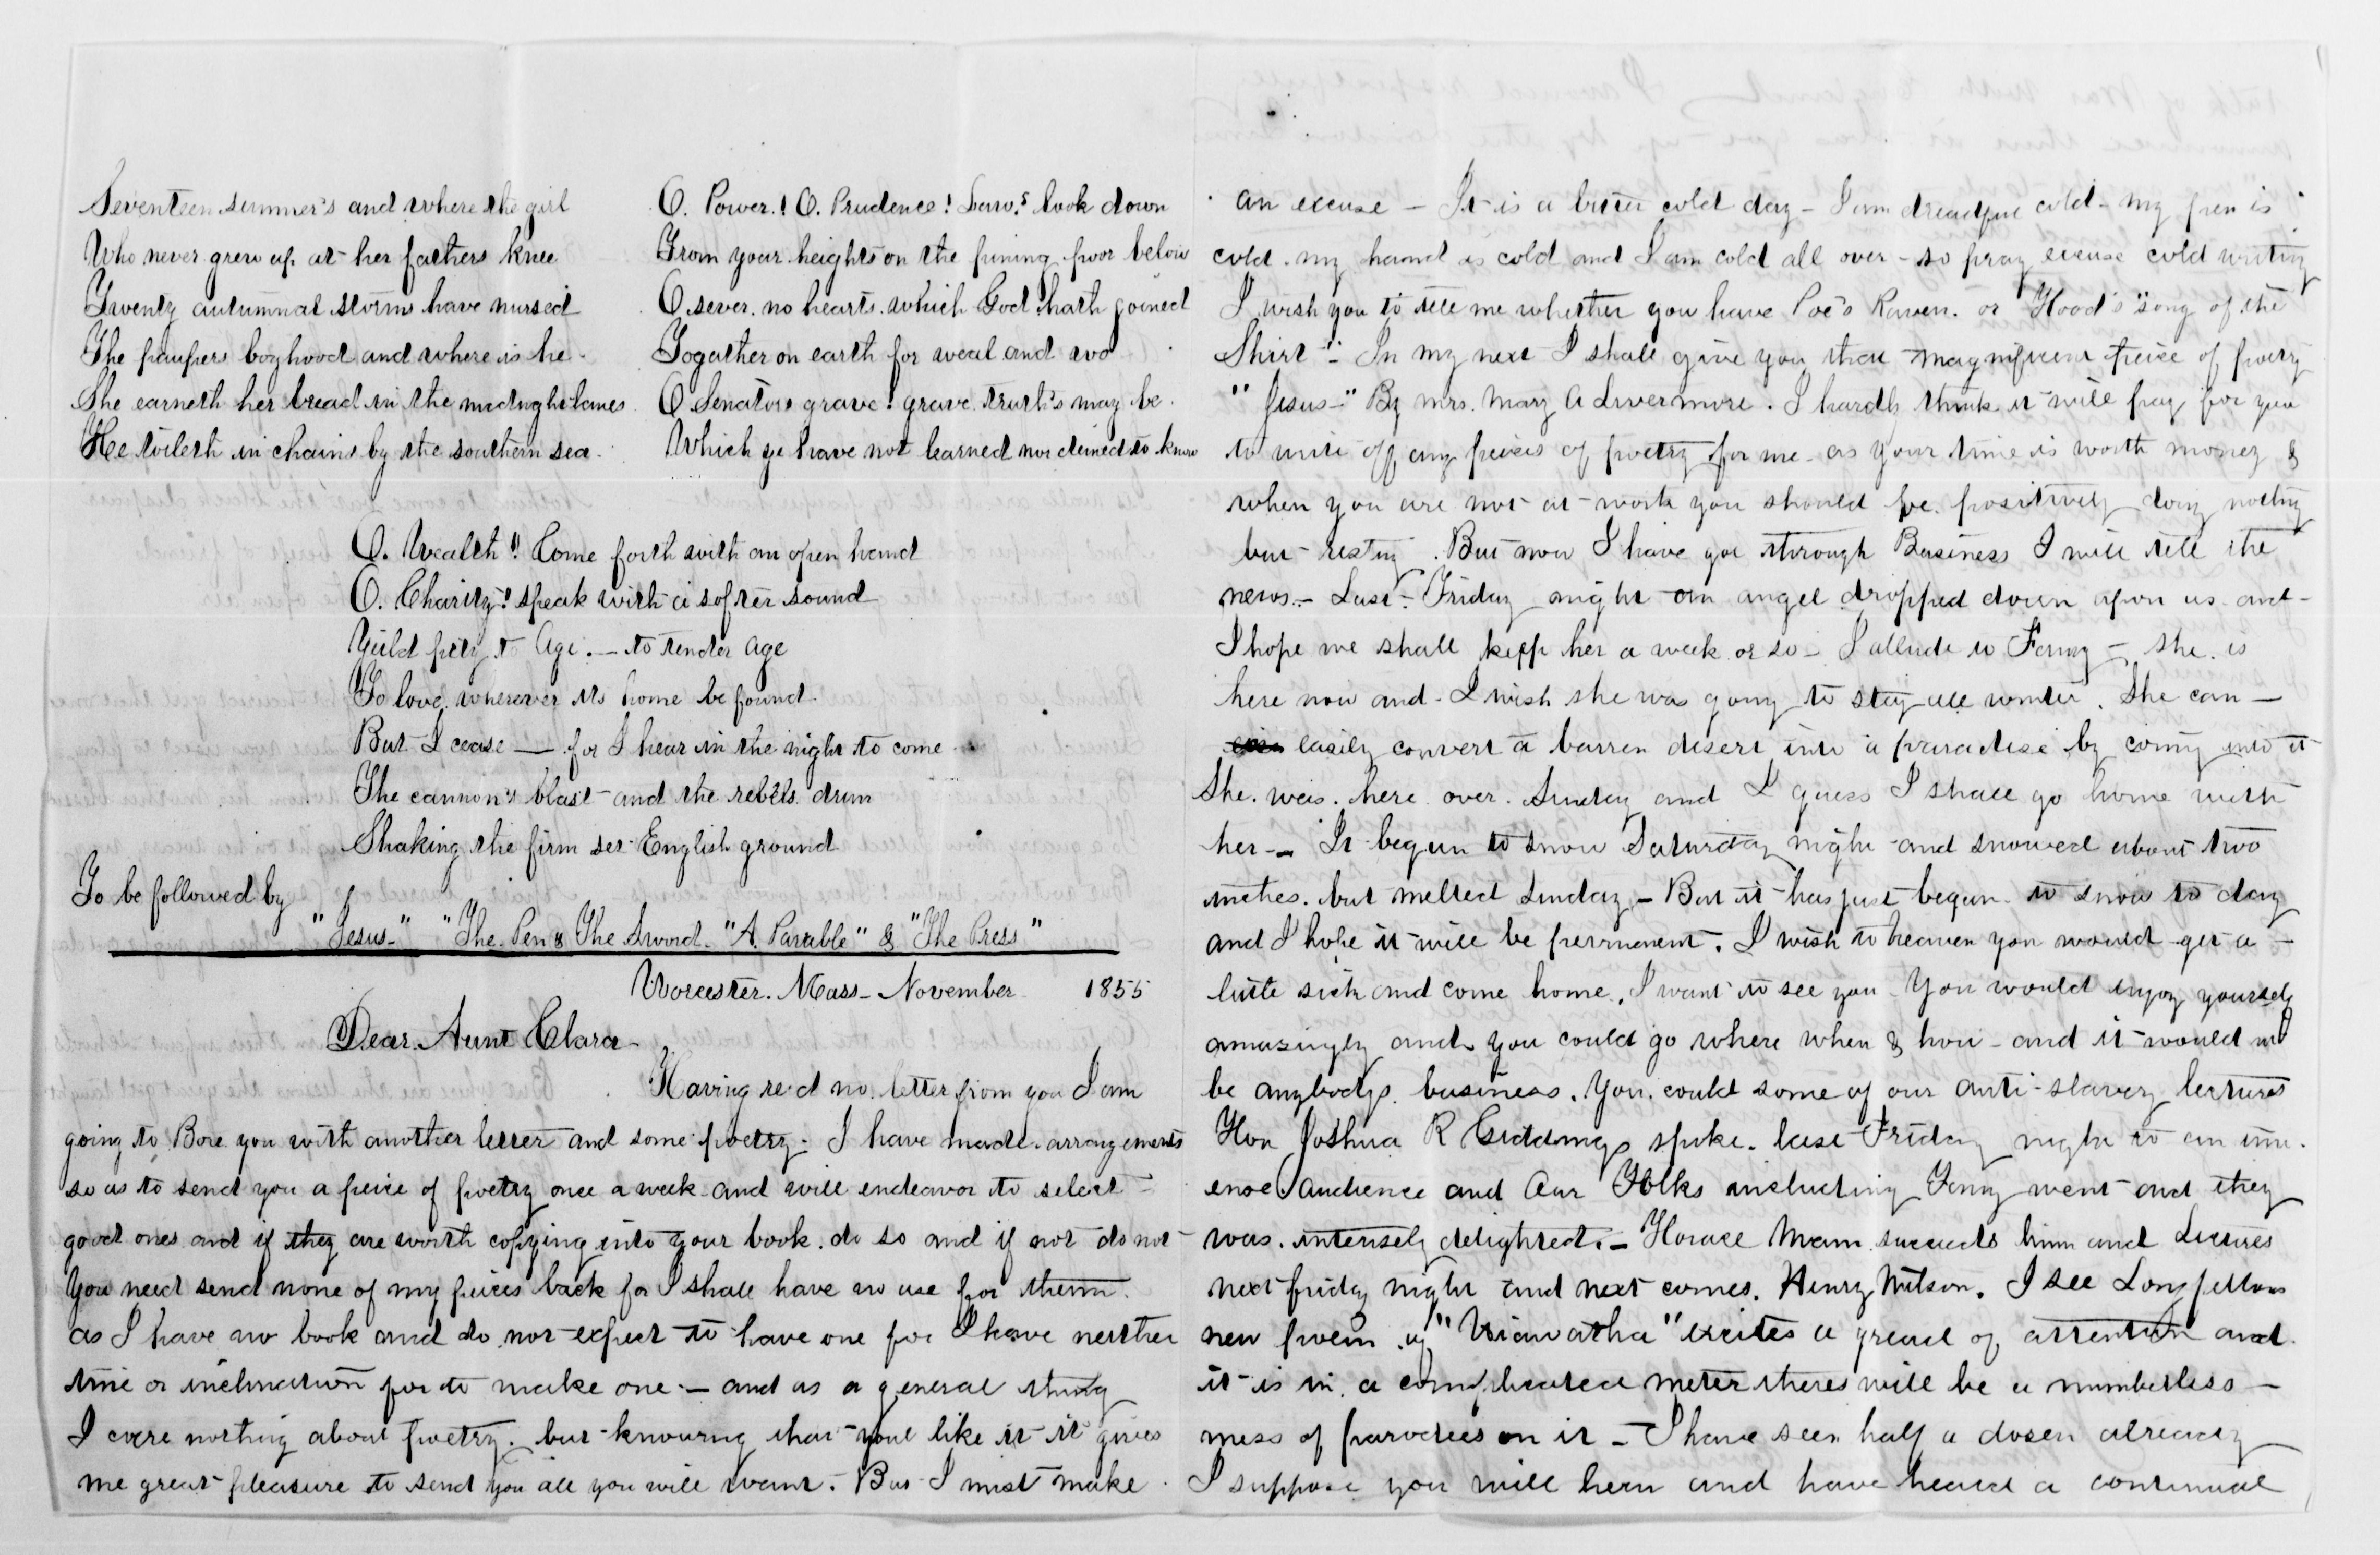 Seventeen summer's and where the girl
Who never grew up at her fathers knee
Twenty autumnal storms have nursed
The paupers boyhood and where is he.
She earneth her bread in the midnight lanes
He toileth in chains by the southern sea.
O. Power! O. Prudence! Law! look down
From your heights on the pining poor below
O sever no hearts which God hath joined
Togather on earth for weal and wo
O Senators grave! grave truth's may be.
Which ye have not learned nor deined to know
O. Wealth!! Come forth with an open hand
O. Charity! speak with a softer sound
Yeild pity to Age. — to tender age
To love wherever its home be found.
But I cease — for I hear in the night to come
The cannon's blast and the rebels drum
Shaking the firm set English ground
To be followed by
"Jesus-" "The Pen & The Sword- "A Parable" & "The Press"
Worcester. Mass- November 1855
Dear Aunt Clara-
Having rec'd no letter from you I am
going to Bore you with another letter and some poetry. I have made arrangements
so as to send you a peice of poetry once a week and will endeavor to select
good ones and if they are worth copying into your book. do so and if not do not
You need send none of my peices back for I shall have no use for them.
as I have no book and do not expect to have one for I have neither
time or inclination for to make one — and as a general thing
I care nothing about poetry. but knowing that you like it it gives
me great pleasure to send you all you will want. But I must make
an excuse — It is a bitter cold day — I am dreadful cold — my pen is
cold. my hand is cold and I am cold all over — so pray excuse cold writing
I wish you to tell me whether you have Poe's Raven. or "Hood's "song of the
Shirt". In my next I shall give you that magnificent peice of poetry
"Jesus-" By Mrs. Mary A Livermore. I hardly think it will pay for you
to write off any peices of poetry for me as your time is worth money &
when you are not at work you should be positively doing nothing
but resting. But now I have got through Business I will tell the
news — Last Friday night an angel dropped down upon us and
I hope we shall keep her a week or so — I allude to Fanny — She is
here now and I wish she was going to stay all winter. She can —
easily convert a barren desert into a paradise by coming into it
She was here over Sunday and I guess I shall go home with
her — It begun to snow Saturday night and snowed about two
inches. but melted Sunday — But it has just begun to snow to day
and I hope it will be permenent. I wish to heaven you would get a —
little sick and come home. I want to see you You would enjoy yourself
amazingly and you could go where when & how — and it would no
be anybodys business. You could some of our anti-slavery lectures
Hon Joshua R Giddings spoke last Friday night to an imm.
ense Audience and Our Folks including Fanny went and they
was. intensely delighted. — Horace Mann succeeds him and Lectures
next friday night and next comes. Henry Wilson. I see Longfellows
new poem of "Hiawatha" excites a great of attention and
it is in a complicated meter theres will be a numberless —
mess of parodies on it — I have seen half a dosen already
I suppose you will hear and have heard a continual